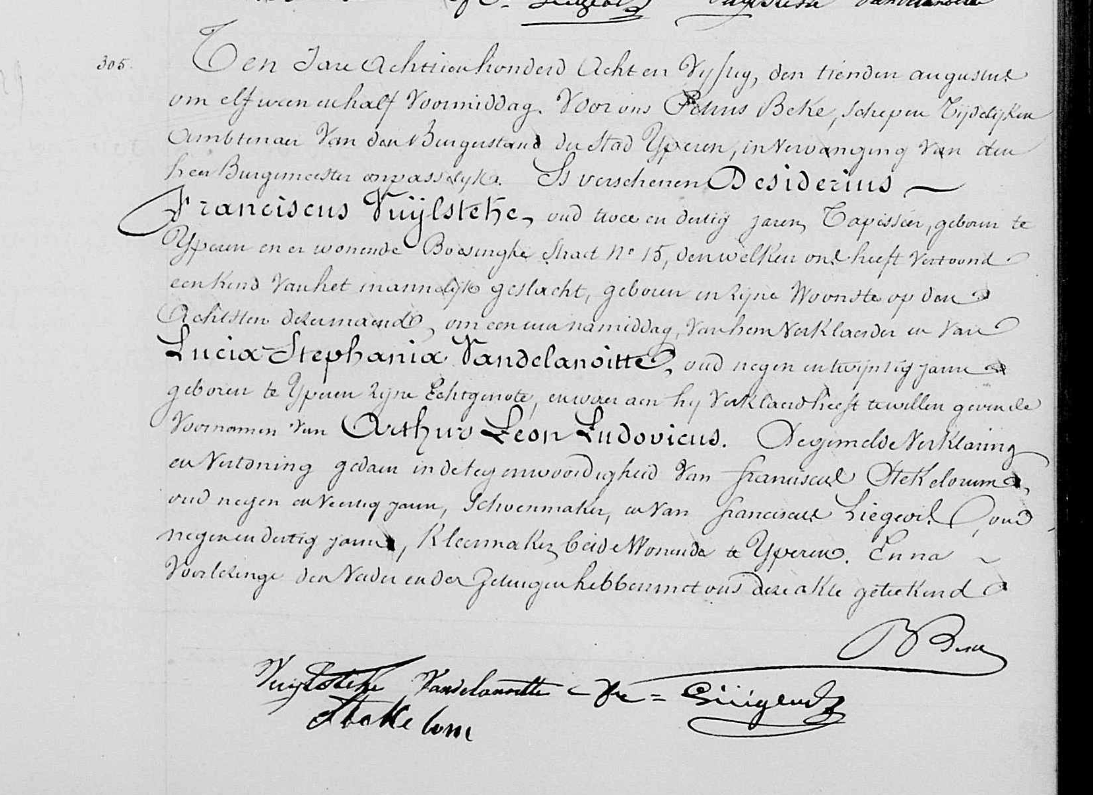 305.
Ten Jare Achttien honderd Acht en Vyftig, den tienden augustus
om elf uren en half Voormiddag. Voor ons Petrus Beke, schepen Tijdelijken
Ambtenaer Van den Burgerstand der stad Yperen, in Vervanging Van den
heer Burgemeester onpasselyk. Is verschenen Desiderius
Franciscus Vuÿlsteke, oud twee en dertig jaren, Tapissier, geboren te
Yperen en er wonende Boesinghe straet No 15, den welken ons heeft Vertoond
een kind Van het mannelijk geslacht, geboren in zijne Woonste op den
Achtsten dezer maend, om een ure namiddag, Van hem Verklaerder en Van
Lucia Stephania Vandelanoitte, oud negen en twintig jaren
geboren te Yperen zijne Echtgenote, en waer aen hy Verklaerd heeft te willen geven de
Voornamen Van Arthur Leon Ludovicus. De gemelde Verklaring
en Vertoning gedaen in de tegenwoordigheid Van franciscus Stekelorum,
oud negen en Veertig jaren, Schoenmaker, en Van franciscus Liegeois, oud
negen en dertig jaren, Kleermaker, beide Wonende te Yperen. En na
Voorlezinge den Vader en der Getuigen hebben met ons deze akte geteekend
Vuylsteke Vandelanoitte